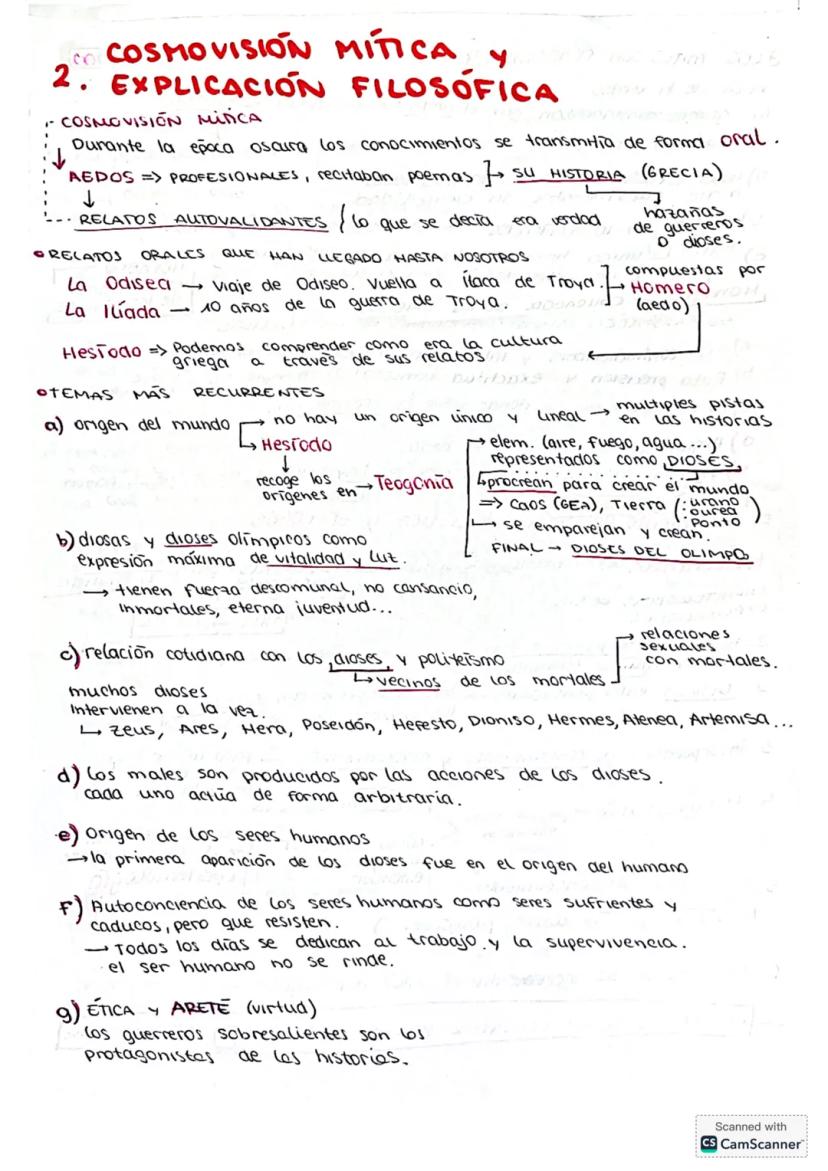 2. COSMOVISIÓN MÍTICA y
EXPLICACIÓN FILOSÓFICA
- COSMOVISIÓN MÍTICA
Durante la época oscura los conocimientos se transmitía de forma oral.
AEDOS => PROFESIONALES, recitaban poemas → SU HISTORIA (GRECIA)
hazañas
de guerreros
o dioses.
RELATOS AUTOVALIDANTES / lo que se decía era verdad
• RELATOS ORALES QUE HAN LLEGADO HASTA NOSOTROS
La Odisea → viaje de Odiseo. Vuelta a ílaca de Troya.
La Ilíada → 10 años de la guerra de Troya.
compuestas por
→ Homero
(aedo)
Hesíodo => Podemos comprender como era la cultura
griega a través de sus relatos
• TEMAS MÁS RECURRENTES
a) origen del mundo → no hay un origen único y lineal → multiples pistas
en las historias
→ Hesíodo
↓
recoge los
orígenes en → Teogonía
→ elem. (aire, fuego, agua ...)
representados como DIOSES,
procrean para crear el mundo
=> Caos (GEA), Tierra (: urano
ourea
Ponto )
→ se emparejan y crean.
FINAL → DIOSES DEL OLIMPO
b) diosas y dioses Olímpicos como
expresión máxima de vitalidad y luz.
→ tienen fuerza descomunal, no cansancio,
inmortales, eterna juventud...
c) relación cotidiana con los dioses, y politeísmo
→ vecinos de los mortales
→ relaciones
sexuales
con mortales.
muchos dioses
intervienen a la vez.
↳ Zeus, Ares, Hera, Poseidón, Hefesto, Dioniso, Hermes, Atenea, Artemisa ...
d) Los males son producidos por las acciones de los dioses.
cada uno actúa de forma arbitraria.
e) Origen de los seres humanos
→ la primera aparición de los dioses fue en el origen del humano
f) Autoconciencia de los seres humanos como seres sufrientes y
caducos, pero que resisten.
→ Todos los días se dedican al trabajo y la supervivencia.
el ser humano no se rinde.
g) ÉTICA y ARETÉ (virtud)
los guerreros sobresalientes son los
protagonistas de las historias.
Scanned with
CS CamScanner